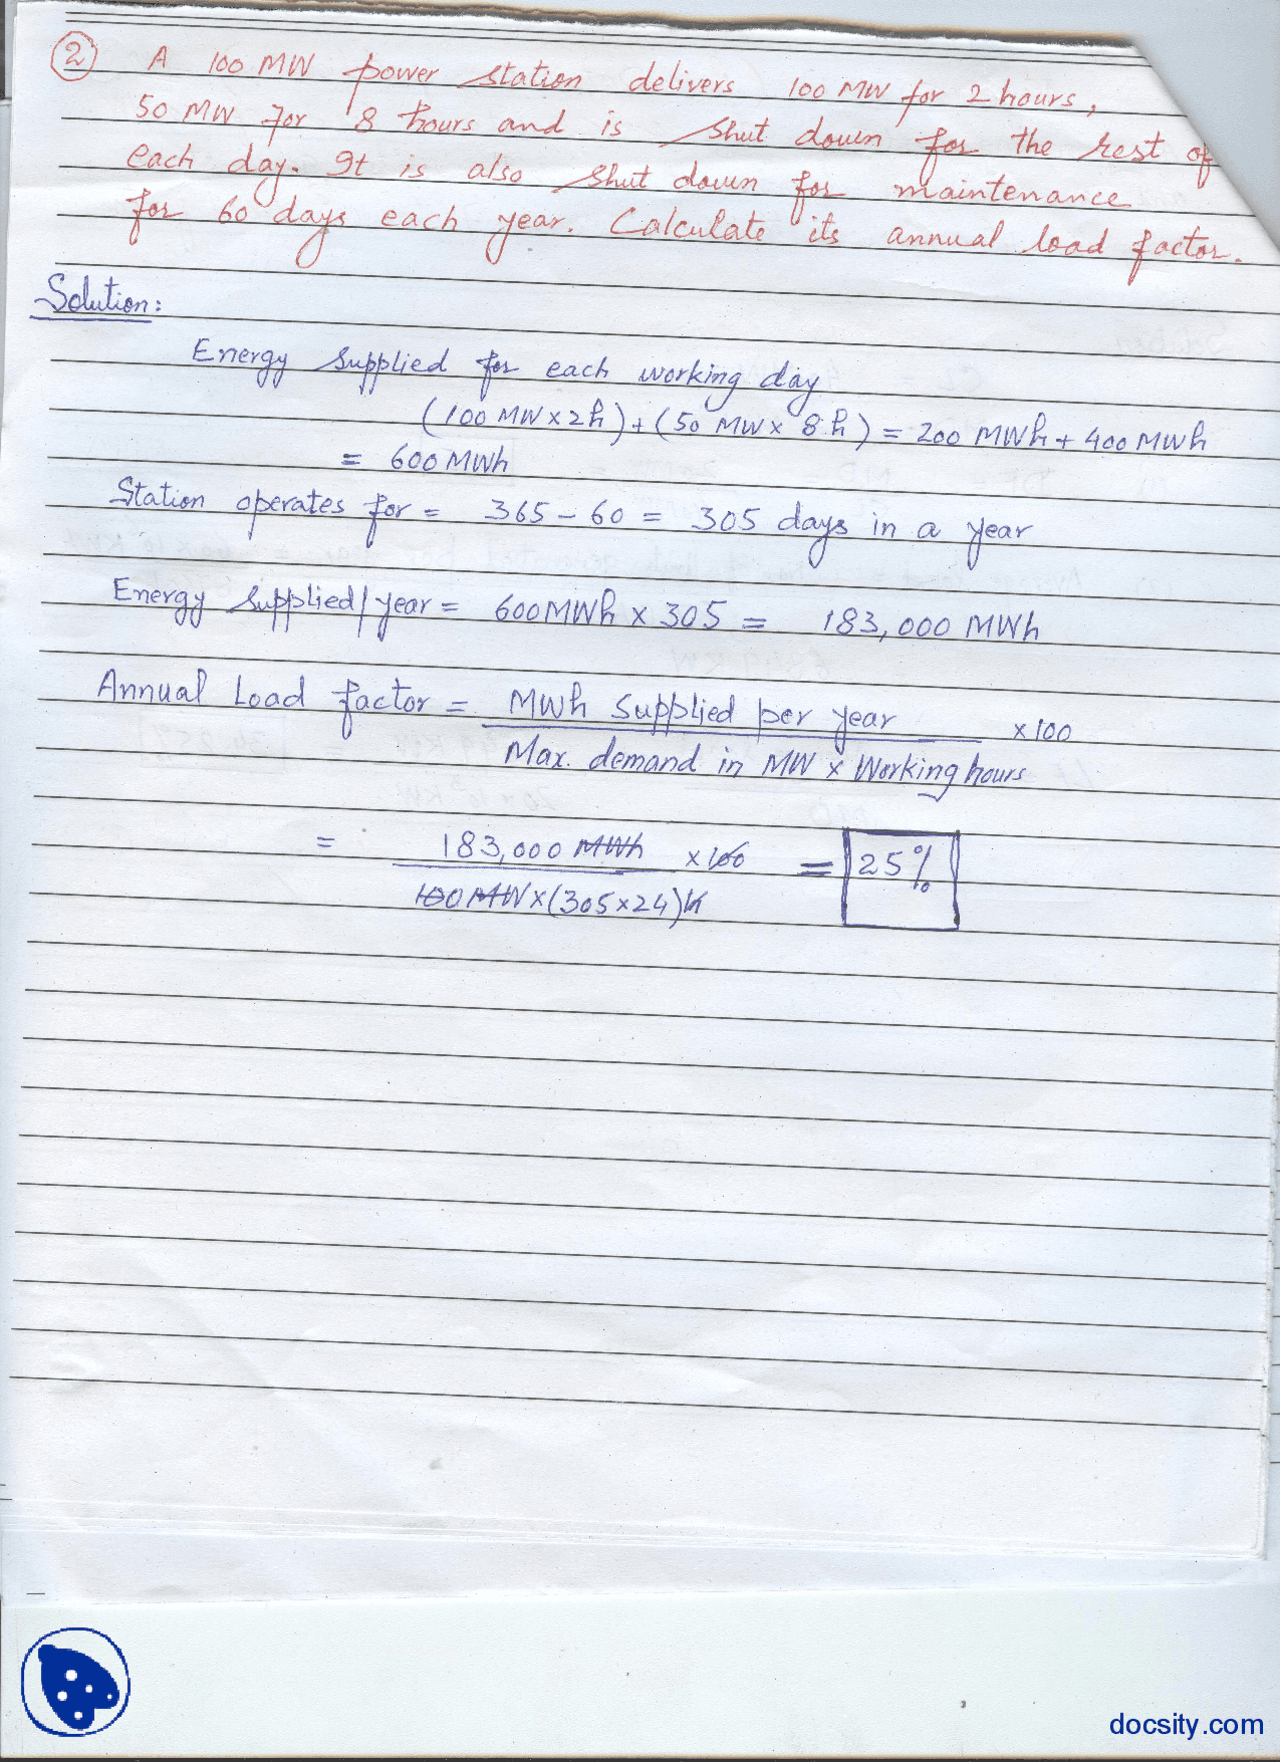 2 A 100 MW power station delivers 100 MW for 2 hours,
50 MW for 8 hours and is shut down for the rest of
each day. It is also shut down for maintenance
for 60 days each year. Calculate its annual load factor.
Solution:
Energy Supplied for each working day
(100 MW x 2h) + (50 MW x 8 h) = 200 MWh + 400 MWh
= 600 MWh
Station operates for = 365 - 60 = 305 days in a year
Energy Supplied/year = 600MWh x 305 = 183,000 MWh
Annual Load factor = MWh supplied per year x 100
Max. demand in MW x Working hours
= 183,000 MWh x 100 = 25%
100 MW x (305 x 24) h
docsity.com